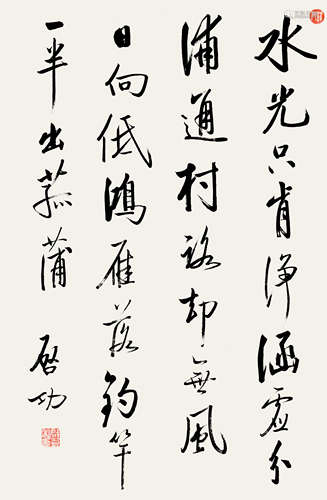 水光只肯浄涵虚分
浦通村路却無風
日向低鴻雁落釣竿
一半出菰蒲
啓功